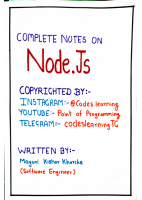 COMPLETE NOTES ON
Node.Js
COPYRIGHTED BY:-
INSTAGRAM:- @Codes.learning
YOUTUBE:- Point of Programming
TELEGRAM:- codeslearningTG
WRITTEN BY:-
Mayuri Kishor
(Software Engineer)